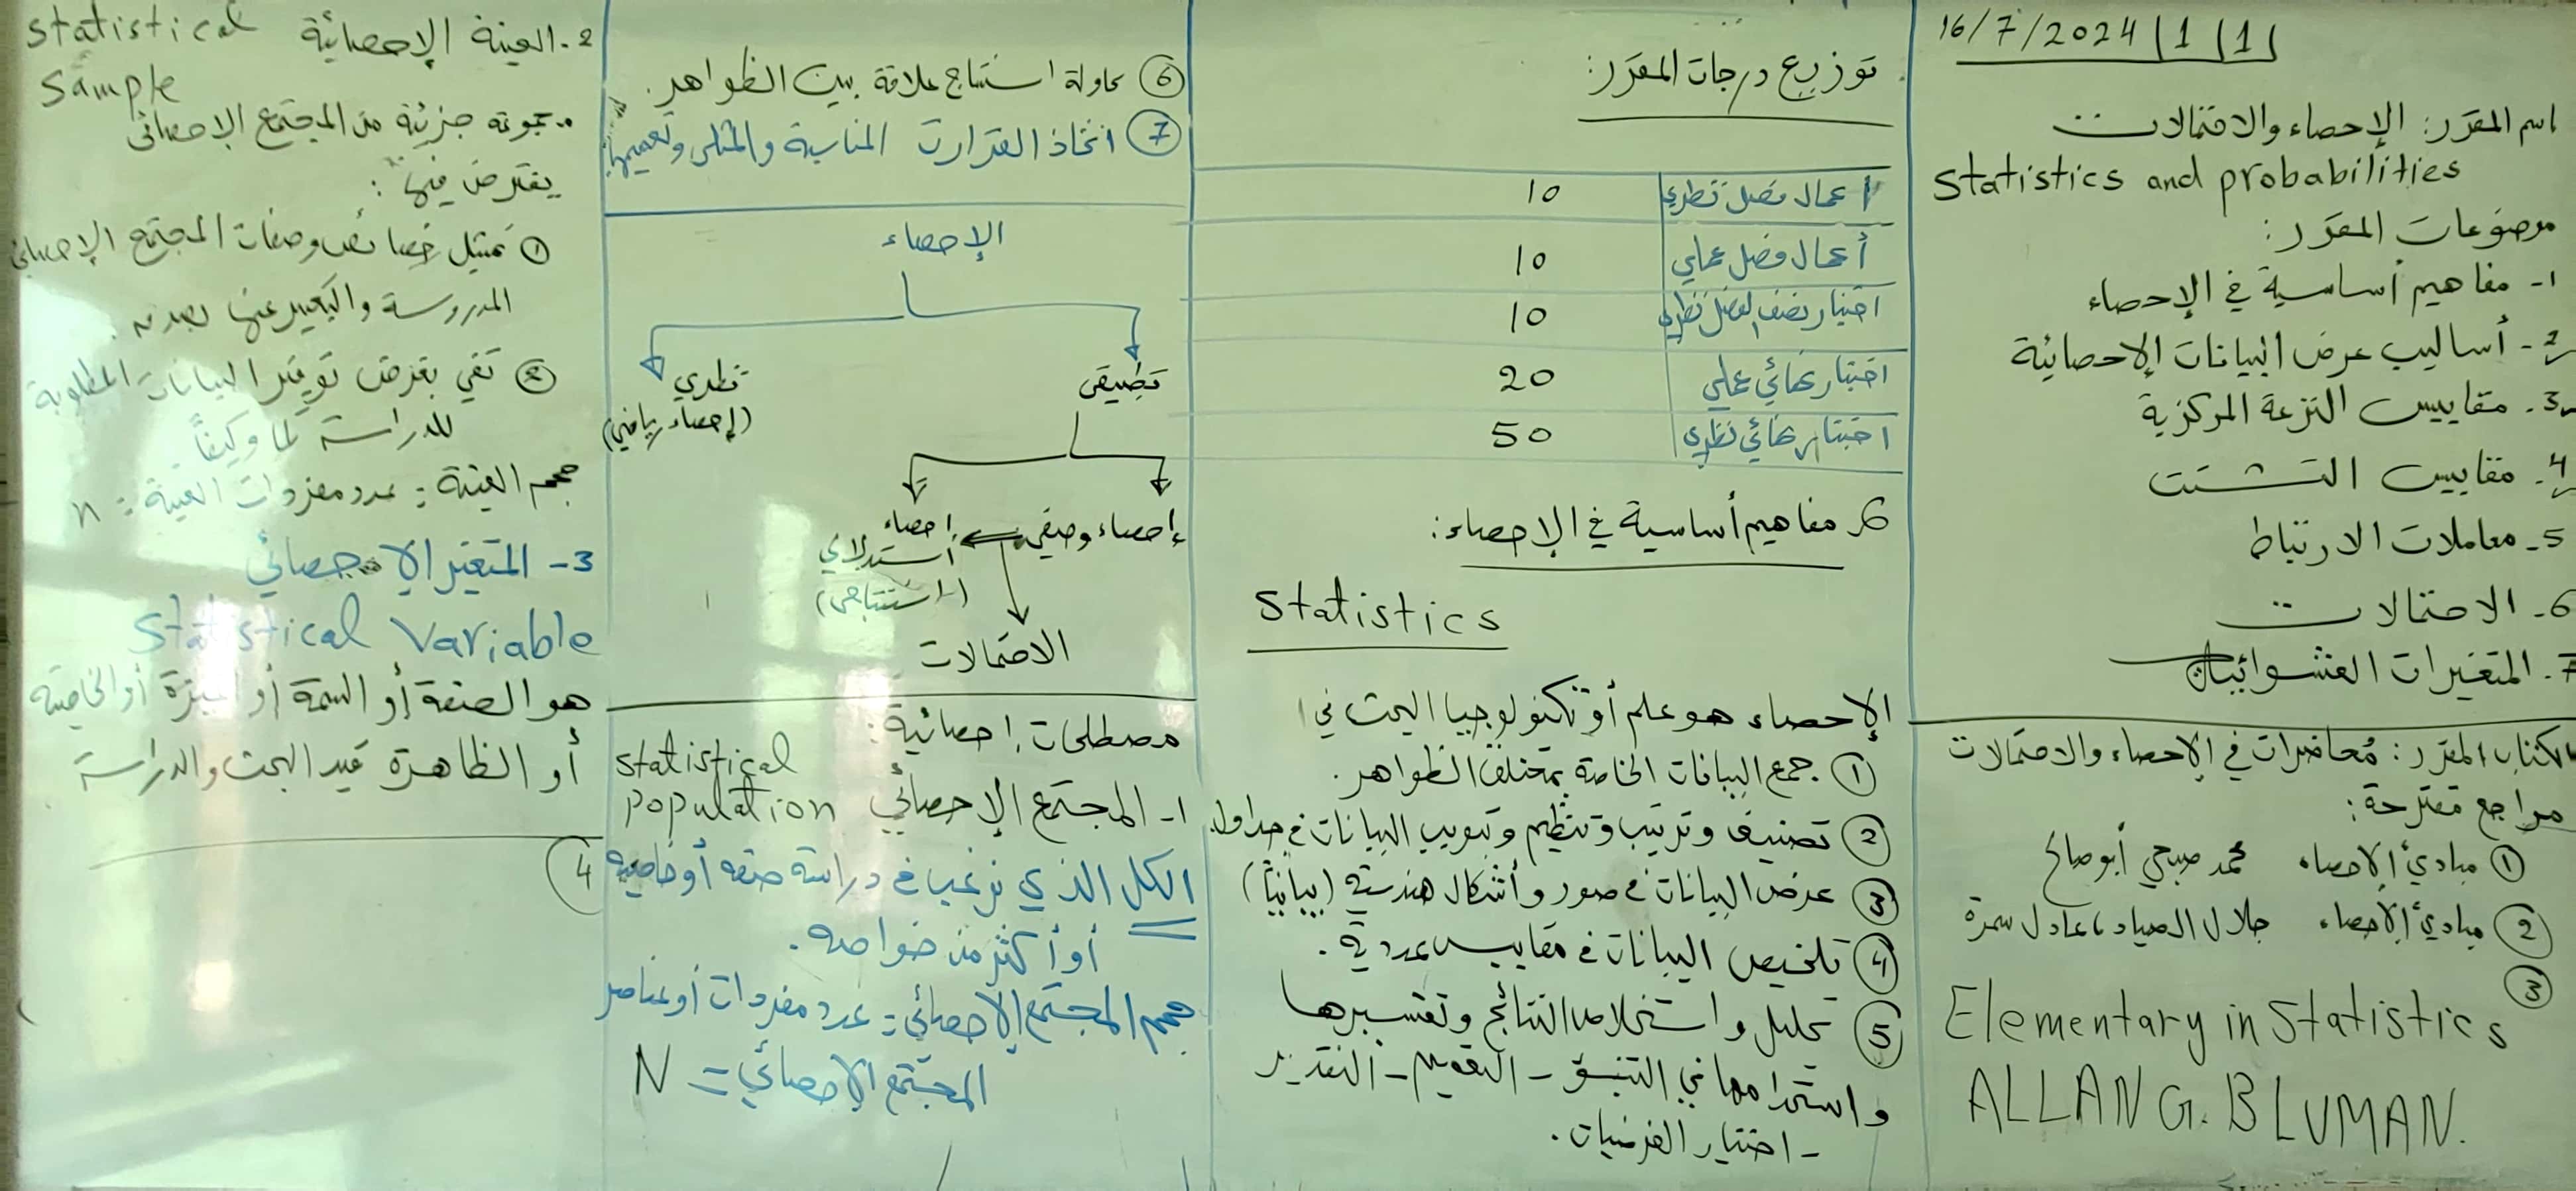 16/7/2024 | 1 | 1
اسم المقرر: الإحصاء والاحتمالات
Statistics and probabilities
موضوعات المقرر:
1- مفاهيم أساسية في الإحصاء
2- أساليب عرض البيانات الإحصائية
3- مقاييس النزعة المركزية
4- مقاييس التشتت
5- معاملات الارتباط
6- الاحتمالات
7- المتغيرات العشوائية
الكتاب المقرر: محاضرات في الإحصاء والاحتمالات
مراجع مقترحة:
① مبادئ الإحصاء محمد صبحي أبو صالح
② مبادئ الإحصاء جلال الصياد، عادل سمرة
③
Elementary in Statistics
ALLAN G. BLUMAN.
توزيع درجات المقرر:
أعمال فصل نظري 10
أعمال فصل عملي 10
اختبار نصف الفصل نظري 10
اختبار نهائي عملي 20
اختبار نهائي نظري 50
مفاهيم أساسية في الإحصاء:
Statistics
الإحصاء هو علم أو تكنولوجيا البحث في
① جمع البيانات الخاصة بمختلف الظواهر.
② تصنيف وترتيب وتنظيم وتبويب البيانات في جداول
③ عرض البيانات في صور وأشكال هندسية (بيانياً)
④ تلخيص البيانات في مقاييس عددية.
⑤ تحليل واستخلاص النتائج وتفسيرها
واستخدامها في التنبؤ - التقييم - التقدير
- اختبار الفرضيات.
⑥ محاولة استنتاج علاقة بين الظواهر.
⑦ اتخاذ القرارات المناسبة والمثلى وتعميمها
الإحصاء
تطبيقي
نظري
(إحصاء رياضي)
إحصاء وصفي
إحصاء
استدلالي
(استنتاجي)
الاحتمالات
مصطلحات إحصائية:
1- المجتمع الإحصائي Statistical
population
الكل الذي نرغب في دراسة صفة أو خاصية
أو أكثر من خواصه.
حجم المجتمع الإحصائي = عدد مفردات أو عناصر
المجتمع الإحصائي = N
2- العينة الإحصائية Statistical
Sample
مجموعة جزئية من المجتمع الإحصائي
يفترض فيها:
① تمثيل خصائص وصفات المجتمع الإحصائي
المدروسة والتعبير عنها بصدق.
② تفي بغرض توفير البيانات المطلوبة
للدراسة كماً وكيفاً.
حجم العينة = عدد مفردات العينة = n
3- المتغير الإحصائي
Statistical Variable
هو الصفة أو السمة أو الميزة أو الخاصية
أو الظاهرة قيد البحث والدراسة
④